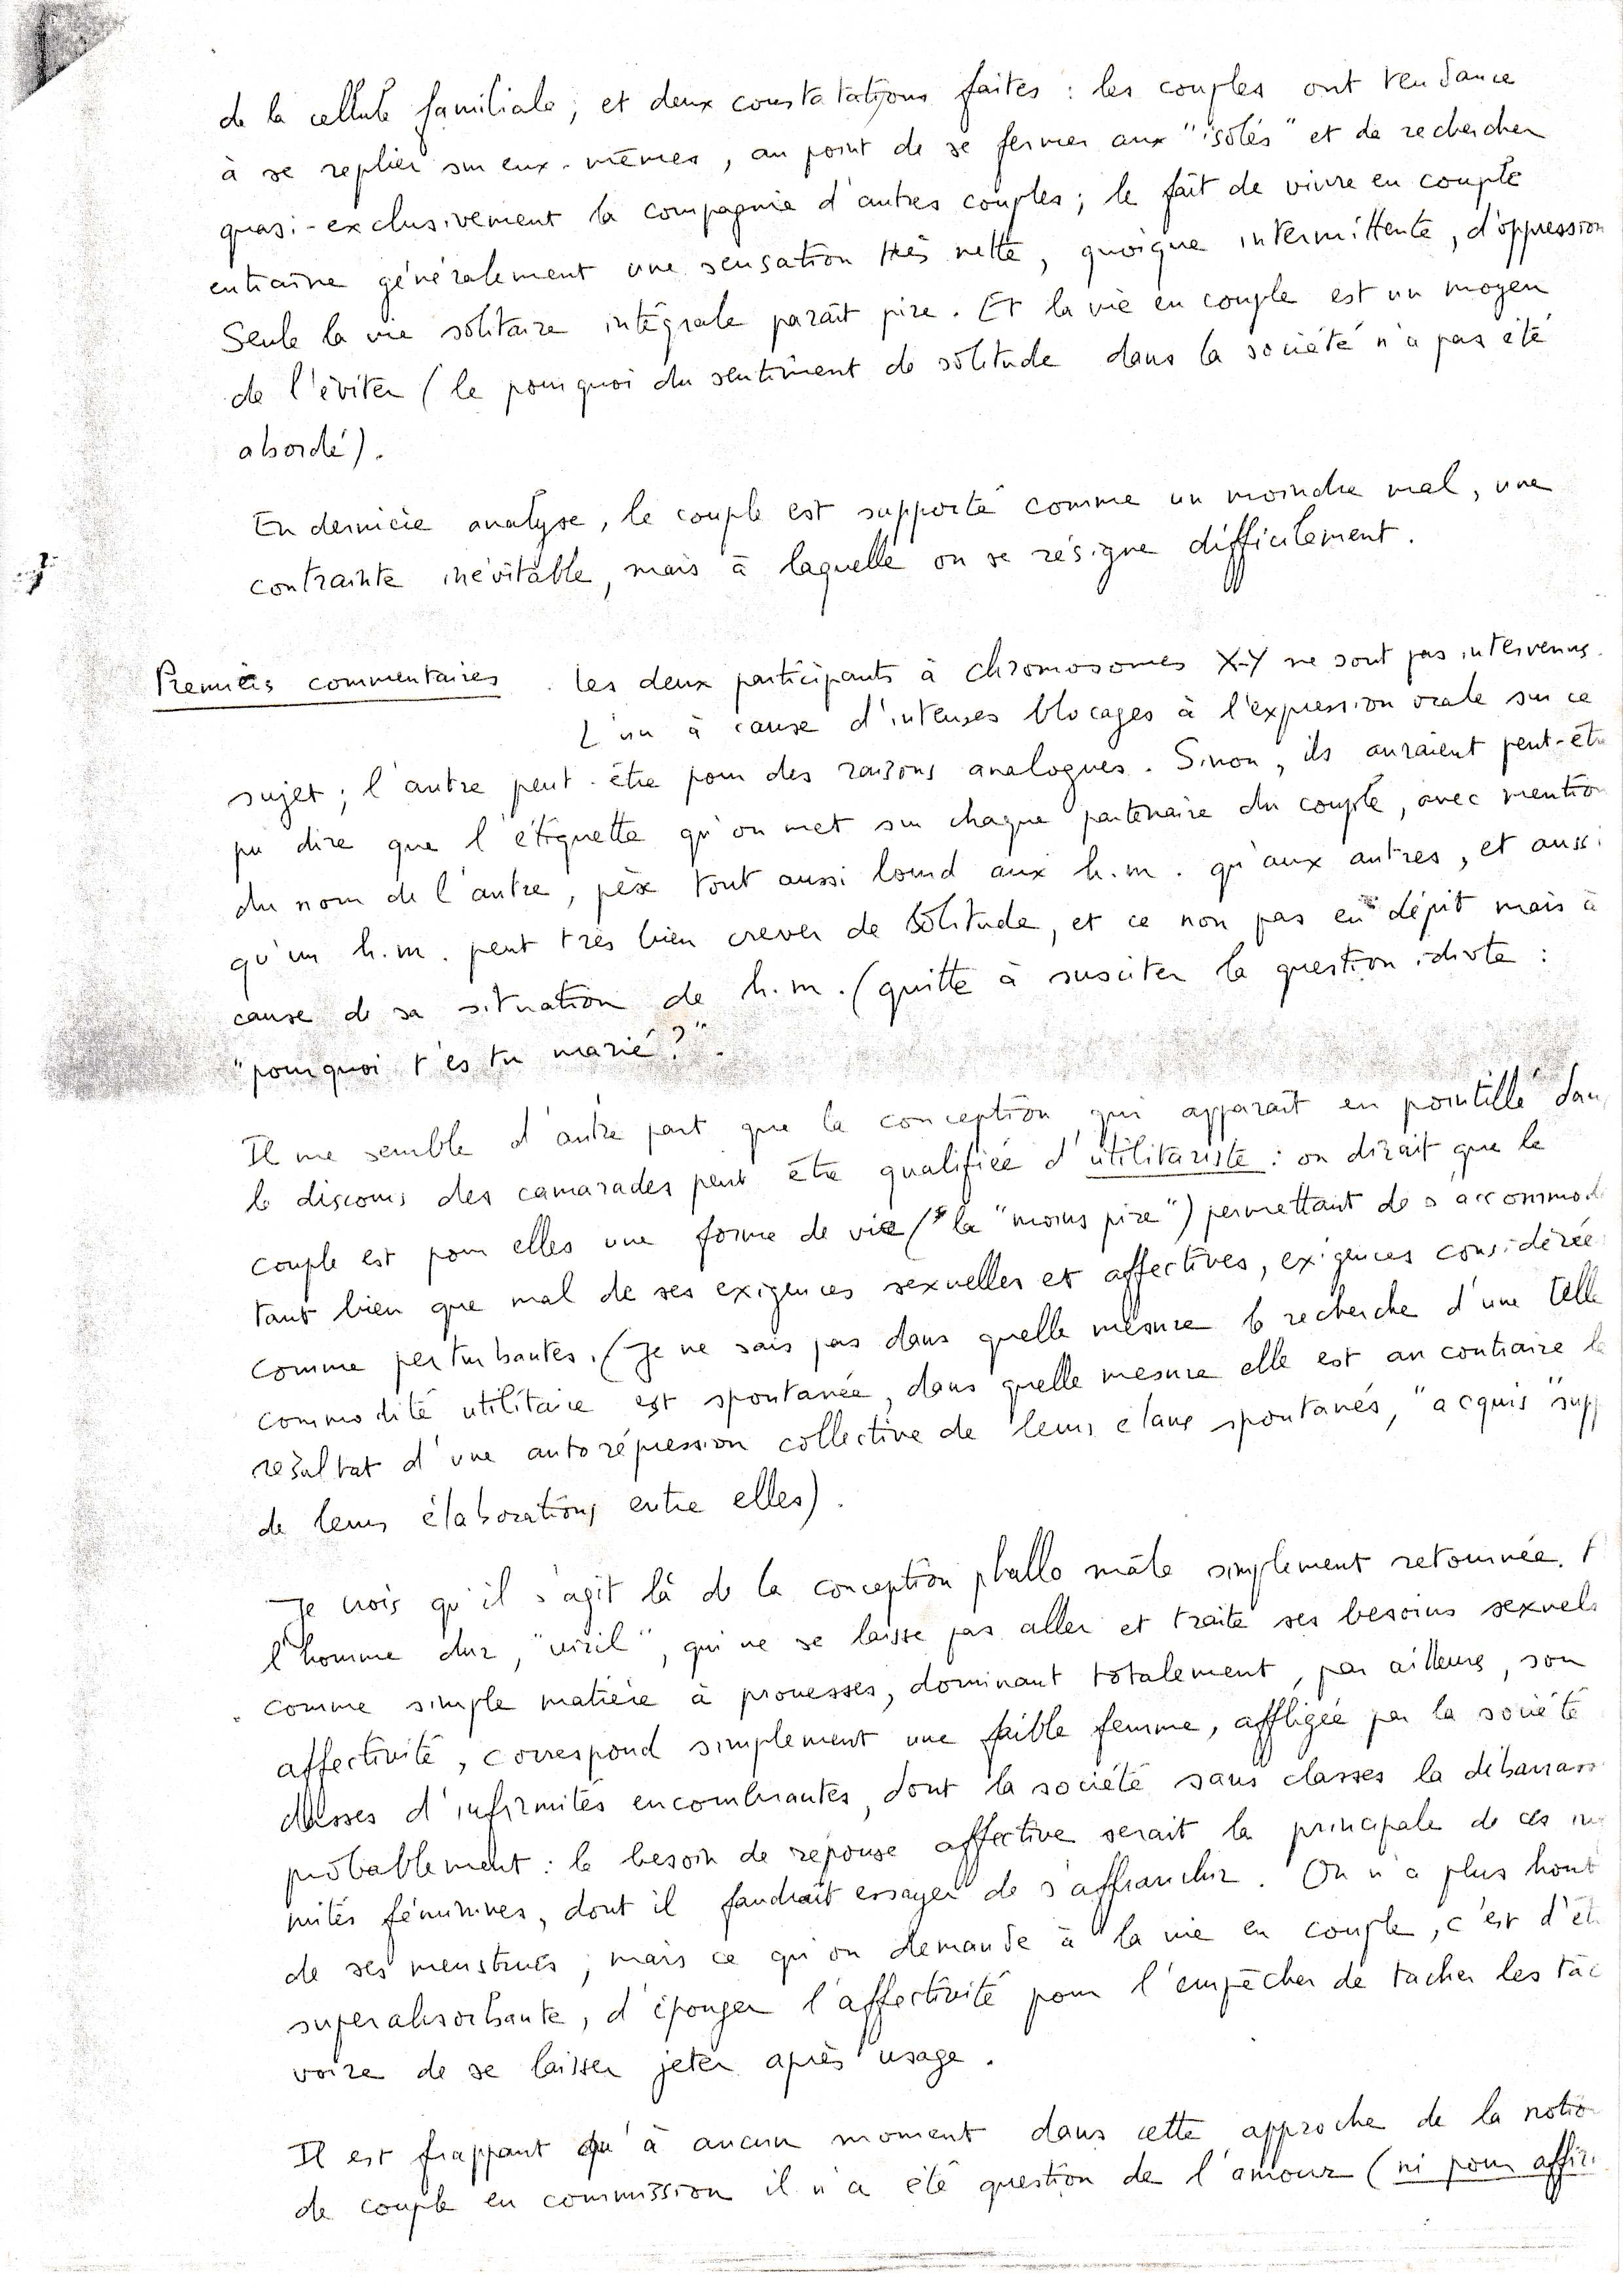 de la cellule familiale ; et deux constatations faites : les couples ont tendance
à se replier sur eux-mêmes, au point de se fermer aux "isolés" et de rechercher
quasi-exclusivement la compagnie d'autres couples ; le fait de vivre en couple
entraîne généralement une sensation très nette, quoique intermittente, d'oppression
Seule la vie solitaire intégrale paraît pire. Et la vie en couple est un moyen
de l'éviter (le pourquoi du sentiment de solitude dans la société n'a pas été
abordé).
En dernière analyse, le couple est supporté comme un moindre mal, une
contrainte inévitable, mais à laquelle on se résigne difficilement.
Premiers commentaires. Les deux participants à chromosomes X-Y ne sont pas intervenus.
L'un à cause d'intenses blocages à l'expression orale sur ce
sujet ; l'autre peut-être pour des raisons analogues. Sinon, ils auraient peut-êt
pu dire que l'étiquette qu'on met sur chaque partenaire du couple, avec mention
du nom de l'autre, pèse tout aussi lourd aux h.m. qu'aux autres, et aussi
qu'un h.m. peut très bien crever de solitude, et ce non pas en dépit mais à
cause de sa situation de h.m. (quitte à susciter la question idiote :
"pourquoi t'es tu marié ?".
Il me semble d'autre part que la conception qui apparaît en pointillé dans
le discours des camarades peut être qualifiée d'utilitariste : on dirait que le
couple est pour elles une forme de vie (la "moins pire") permettant de s'accommod
tant bien que mal de ses exigences sexuelles et affectives, exigences considérée
comme perturbantes. (Je ne sais pas dans quelle mesure la recherche d'une telle
commodité utilitaire est spontanée, dans quelle mesure elle est au contraire le
résultat d'une autorépression collective de leurs élans spontanés, "acquis" supp
de leurs élaborations entre elles).
Je crois qu'il s'agit là de la conception phallo mâle simplement retournée.
l'homme dur, "viril", qui ne se laisse pas aller et traite ses besoins sexuels
comme simple matière à prouesses, dominant totalement, par ailleurs, son
affectivité, correspond simplement une faible femme, affligée par la société
classes d'infirmités encombrantes, dont la société sans classes la débarrass
probablement : le besoin de réponse affective serait la principale de ces in
mités féminines, dont il faudrait essayer de s'affranchir. On n'a plus hont
de ses menstrues ; mais ce qu'on demande à la vie en couple, c'est d'êt
superabsorbante, d'éponger l'affectivité pour l'empêcher de tacher les tâc
voire de se laisser jeter après usage.
Il est frappant qu'à aucun moment dans cette approche de la notio
de couple en commission il n'a été question de l'amour (ni pour affir